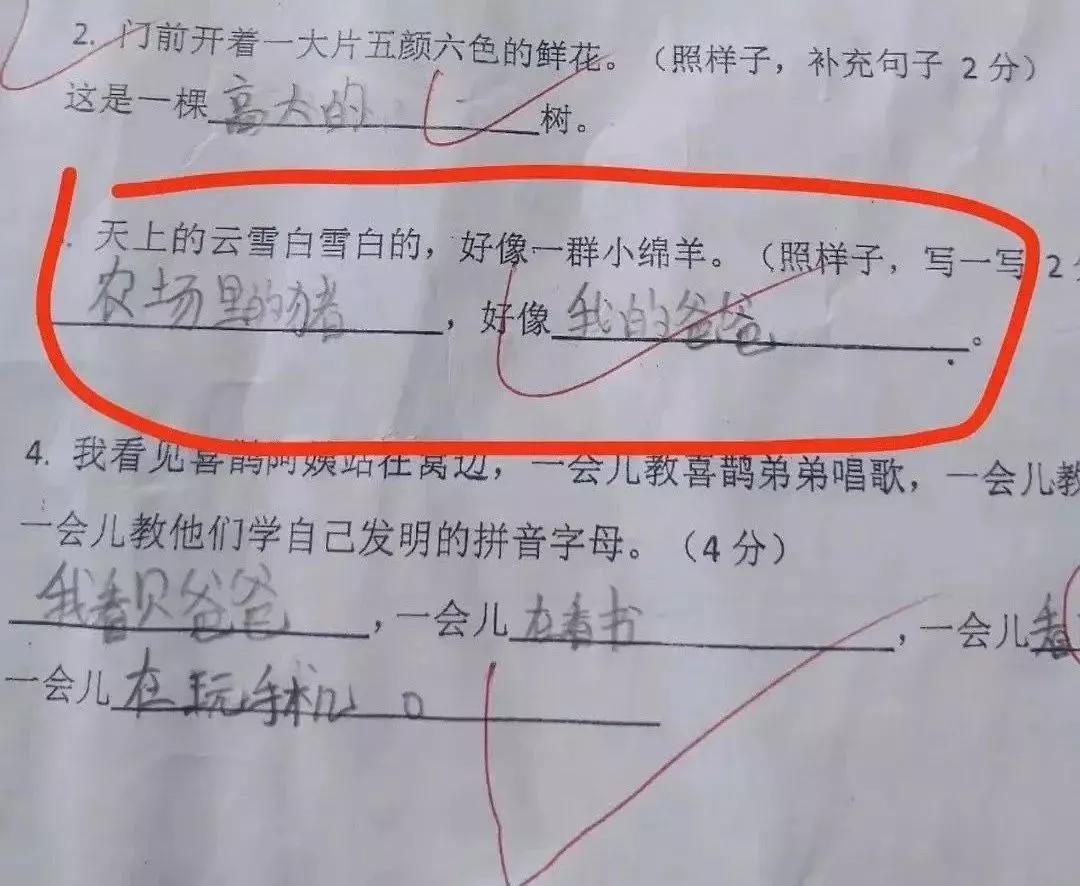 2. 门前开着一大片五颜六色的鲜花。（照样子，补充句子 2分）
这是一棵高大的树。
. 天上的云雪白雪白的，好像一群小绵羊。（照样子，写一写 2
农场里的猪，好像我的爸爸。
4. 我看见喜鹊阿姨站在窝边，一会儿教喜鹊弟弟唱歌，一会儿教
一会儿教他们学自己发明的拼音字母。（4分）
我看贝爸爸，一会儿在看书，一会儿看
一会儿在玩手机。